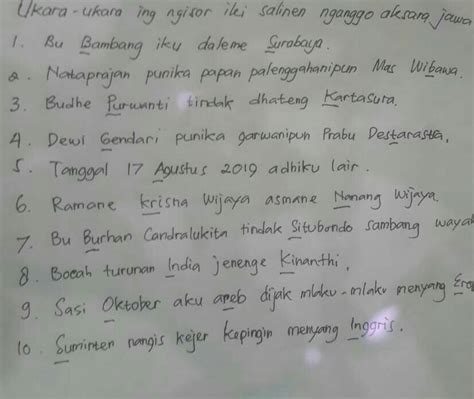 Ukara-ukara ing ngisor iki salinen nganggo aksara jawa
1. Bu Bambang iku daleme Surabaya.
2. Nataprajan punika papan palenggahanipun Mas Wibawa.
3. Budhe Purwanti tindak dhateng Kartasura.
4. Dewi Gendari punika garwanipun Prabu Destarastra.
5. Tanggal 17 Agustus 2019 adhiku lair.
6. Ramane Krisna Wijaya asmane Nanang Wijaya.
7. Bu Burhan Candralukita tindak Situbondo sambang wayah
8. Bocah turunan India jenenge Kinanthi.
9. Sasi Oktober aku areb dijak mlaku-mlaku menyang
10. Suminten nangis kejer kepingin menyang Inggris.